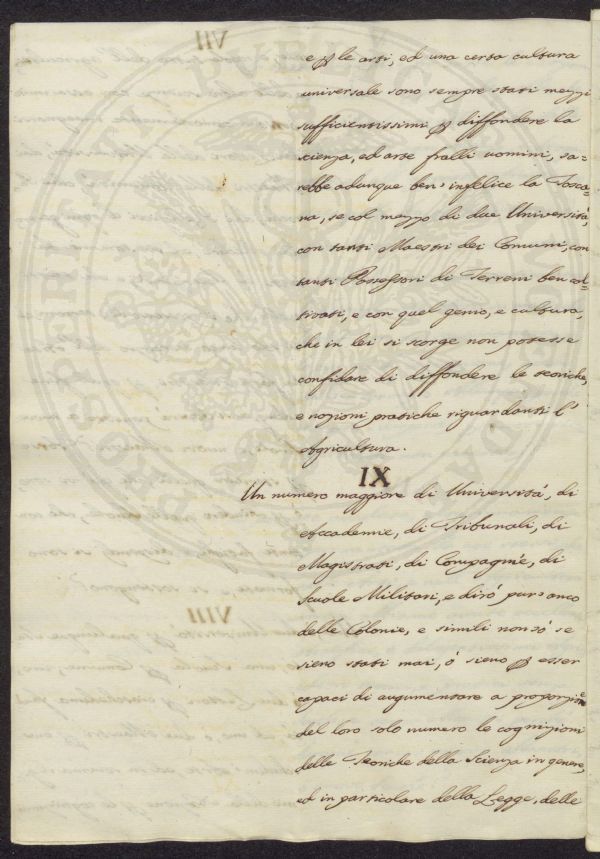 e p le arti, ed una certa cultura
universale sono sempre stati mezzi
sufficientissimi p diffondere la
scienza, ed arte fralli uomini, sa=
rebbe adunque ben' infelice la Tosca=
na, se col mezzo di due Università,
con tanti Maestri dei Comuni, con
tanti Possessori di Terreni ben col=
tivati, e con quel genio, e cultura,
che in lei si scorge non potesse
confidare di diffondere le teoriche,
e nozioni pratiche riguardanti l'
Agricultura.
IX
Un numero maggiore di Università, di
Accademie, di Tribunali, di
Magistrati, di Compagnie, di
Scuole Militari, e dirò pur' anco
delle Colonie, e simili non sò se
sieno stati mai, ò sieno p esser
capaci di augumentare a proporzione
del loro solo numero le cognizioni
delle Teoriche della Scienza in genere,
ed in particolare della Legge, delle
VII
VIII
PROSPERITATI PUBLICAE AUGENDAE